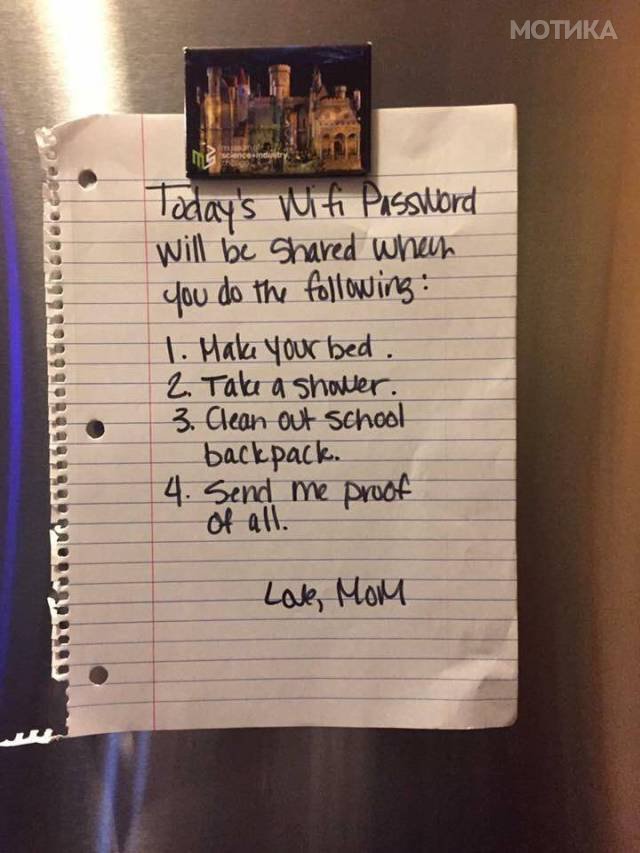 МОТИКА
museum of
science+industry
chicago
Today's Wifi Password
will be shared when
you do the following:
1. Make your bed.
2. Take a shower.
3. Clean out school
backpack.
4. Send me proof
of all.
Love, Mom